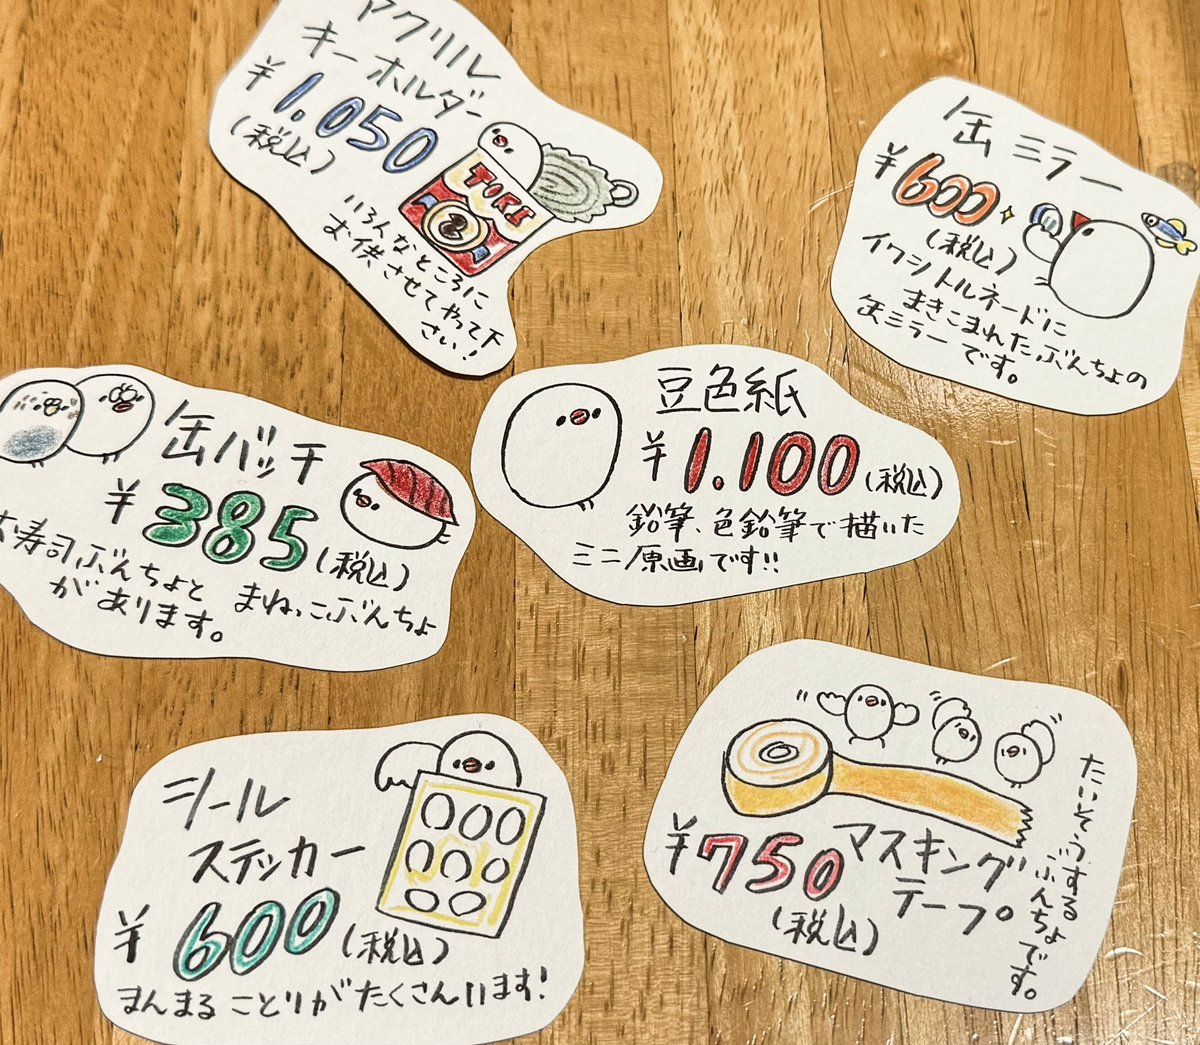 アクリル
キーホルダー
¥1.050
(税込)
TORI
いろんなところに
お供させてやって下
さい!
缶ミラー
¥600
(税込)
イワシトルネードに
まきこまれたぶんちょの
缶ミラーです。
缶バッチ
¥385(税込)
お寿司ぶんちょと まねっこぶんちょ
があります。
豆色紙
¥1.100(税込)
鉛筆、色鉛筆で描いた
ミニ原画です!!
シール
ステッカー
¥600(税込)
まんまることりがたくさんいます!
¥750
マスキング
テープ
(税込)
たいそうする
ぶんちょです。